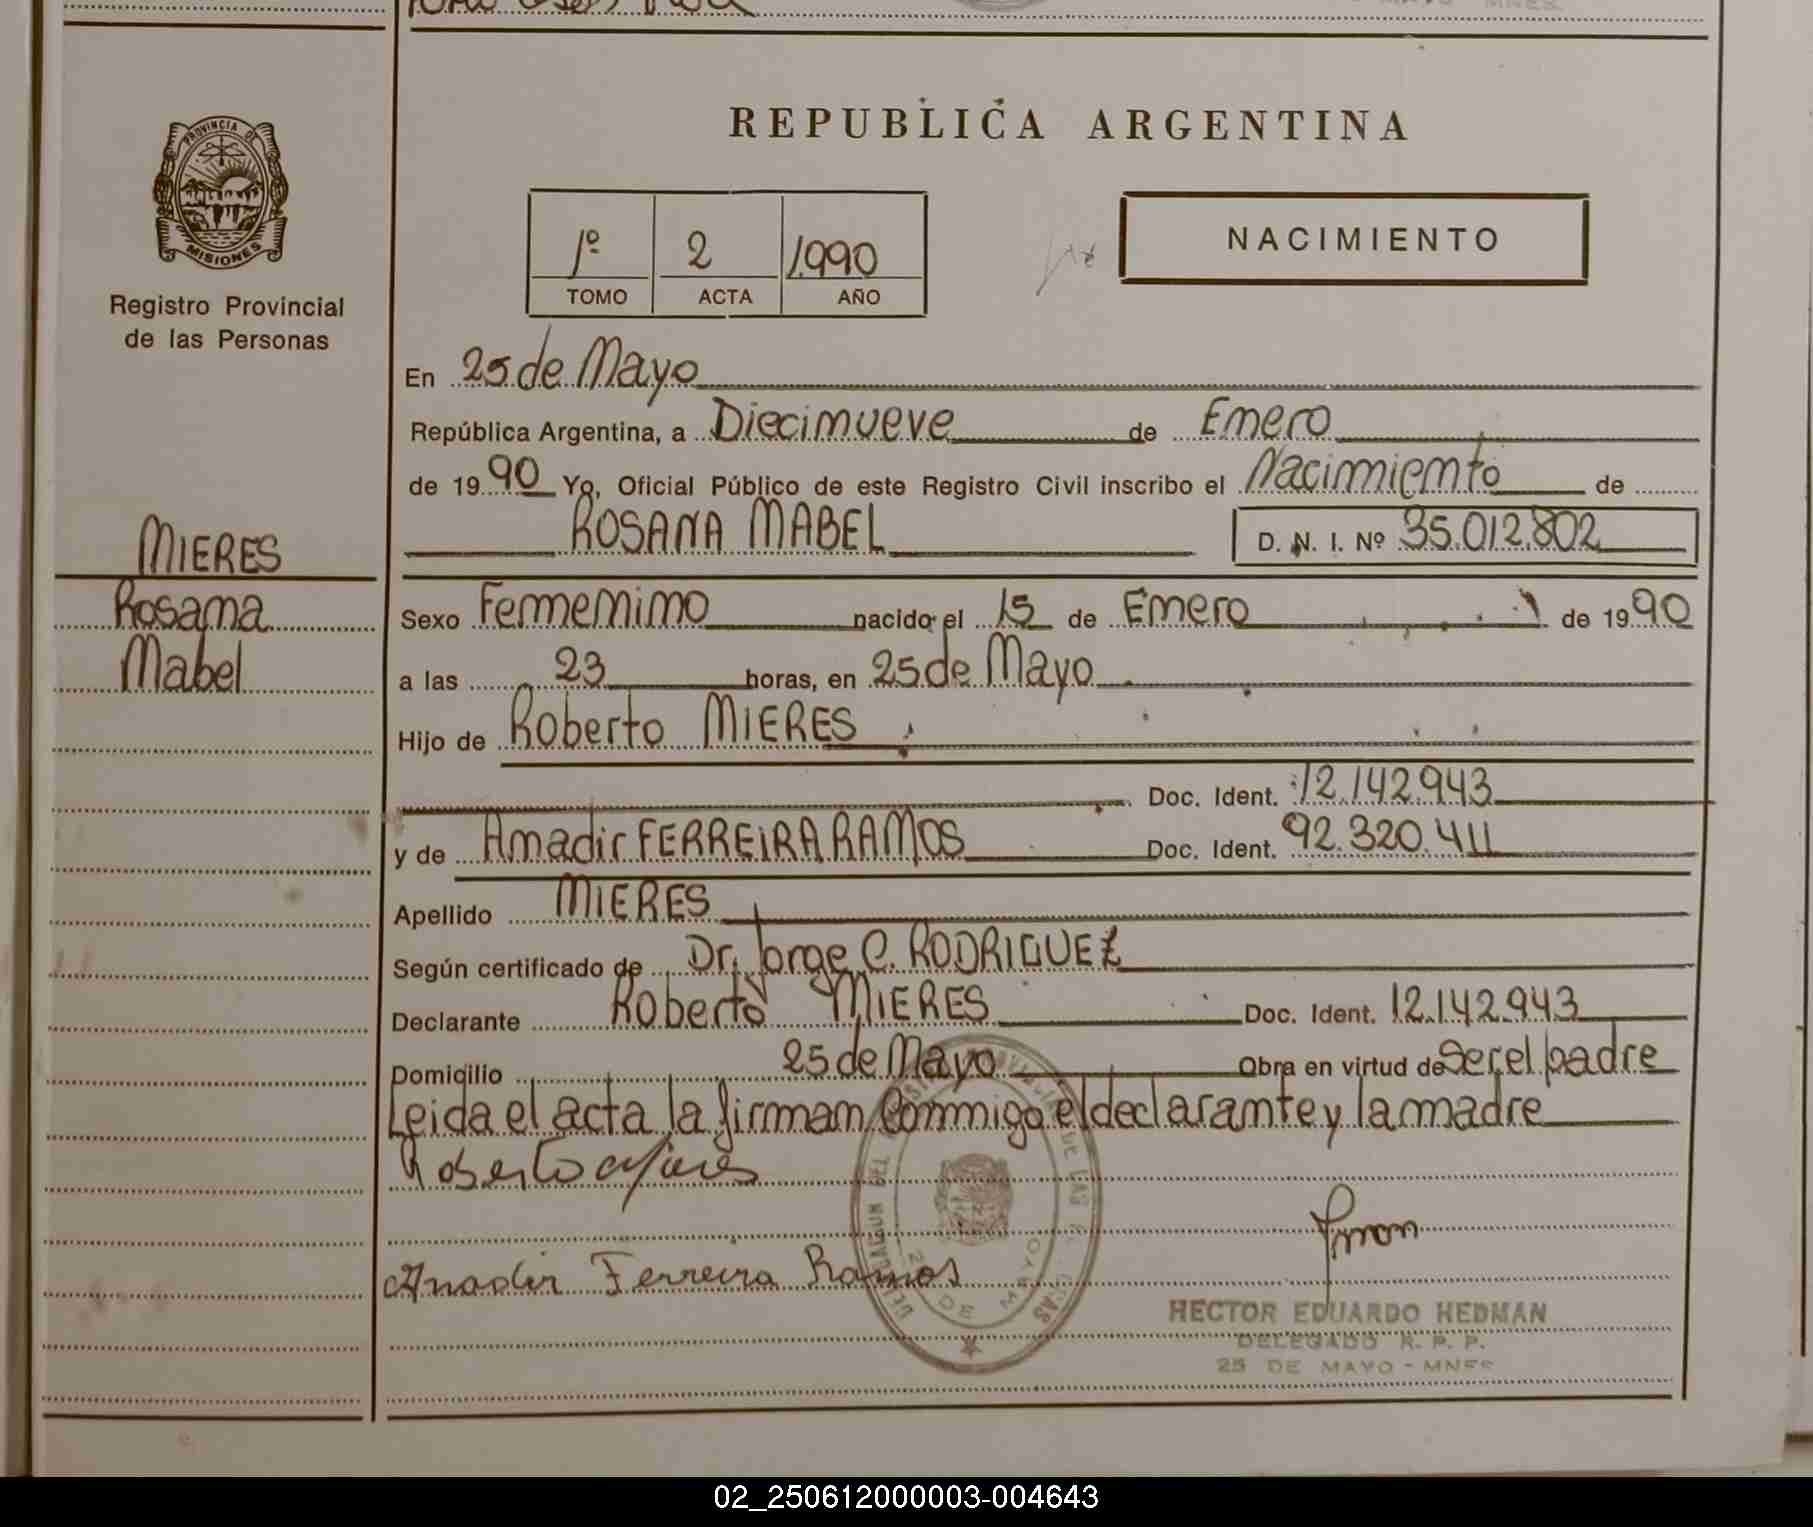 REPUBLICA ARGENTINA
PROVINCIA DE
MISIONES
Registro Provincial
de las Personas
1º 2 1990
TOMO ACTA AÑO
NACIMIENTO
En 25 de Mayo
República Argentina, a Diecinueve de Enero
de 1990 Yo, Oficial Público de este Registro Civil inscribo el Nacimiento de
ROSANA MABEL D. N. I. Nº 35.012.802
MIERES
Rosana
Mabel
Sexo Femenino nacido el 15 de Enero de 1990
a las 23 horas, en 25 de Mayo
Hijo de Roberto MIERES
Doc. Ident. 12.142.943
y de Anadir FERREIRA RAMOS Doc. Ident. 92.320.411
Apellido MIERES
Según certificado de Dr. Jorge C. RODRIGUEZ
Declarante Roberto MIERES Doc. Ident. 12.142.943
Domicilio 25 de Mayo Obra en virtud de Ser el padre
Leida el acta la firman Conmigo el declarante y la madre
Roberto Mieres
Anadir Ferreira Ramos
25 DE MAYO
HECTOR EDUARDO HEDMAN
DELEGADO R. P. P.
25 DE MAYO - MNES
02_250612000003-004643